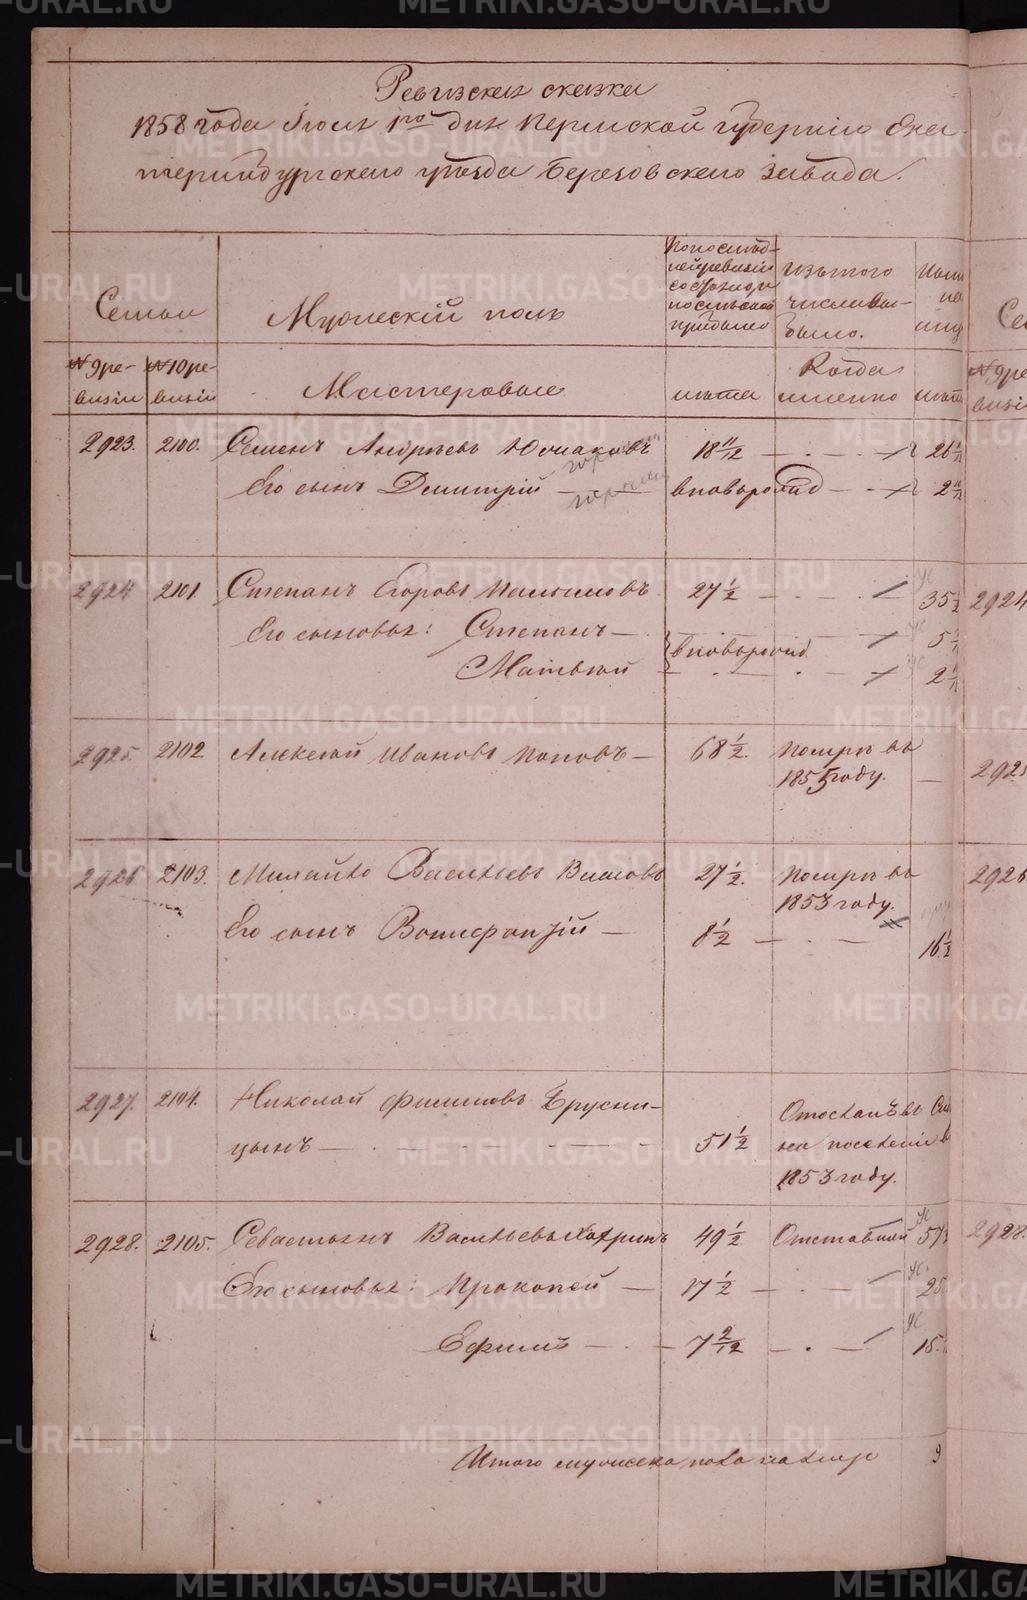 Ревизская сказка
1858 года Июня 1го дня Пермской губернии Ека-
теринбургскаго уѣзда Березовскаго Завода.
Семьи
Мужескій полъ
По послѣд-
ней ревизіи
состояло и
послѣ того
прибыло
Изъ того
числа вы-
было.
Ныне
на
лицо
№ 9 ре-
визіи
№ 10 ре-
визіи
Мастеровые
лѣта
Когда
именно
лѣта
2923. 2100. Семенъ Андреевъ Юшаковъ 18 11/12
Его сынъ Дмитрій вновь рожд
2924 2101. Степанъ Егоровъ 27 1/2 35 1/2 2924
Его сыновья: Степанъ 5
Матвей вновь рожд. 2
2925. 2102 Алексей Ивановъ Поповъ 68 1/2. Померъ въ
1855 году. 2925
2926 2103. Михайло Васильевъ 27 1/2. Померъ въ 2926
1853 году.
Его сынъ Вонифантій 8 1/2 16 1/2
2927. 2104. Николай Филиповъ Брусни-
цынъ 51 1/2 Отосланъ въ
на поселеніе
1853 году.
2928. 2105. Севастьянъ Васильевъ 49 1/2 Отставной 57 2928.
Его сыновья: Прокопей 17 1/2 25
Ефимъ 7 2/12 15
Итого мужеска пола на лицо 9
METRIKI.GASO-URAL.RU